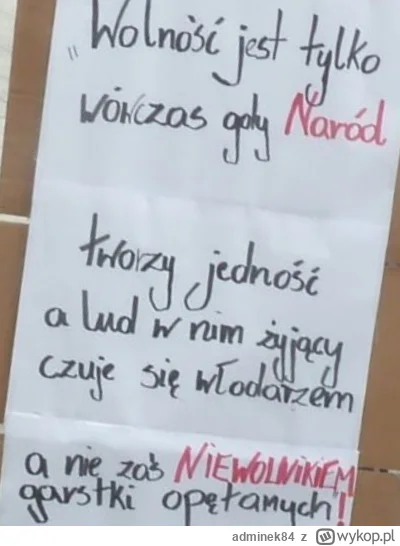 "Wolność jest tylko
wówczas gdy Naród
tworzy jedność
a lud w nim żyjący
czuje się włodarzem
a nie zaś NIEWOLNIKIEM
garstki opętanych!
adminek84 z wykop.pl